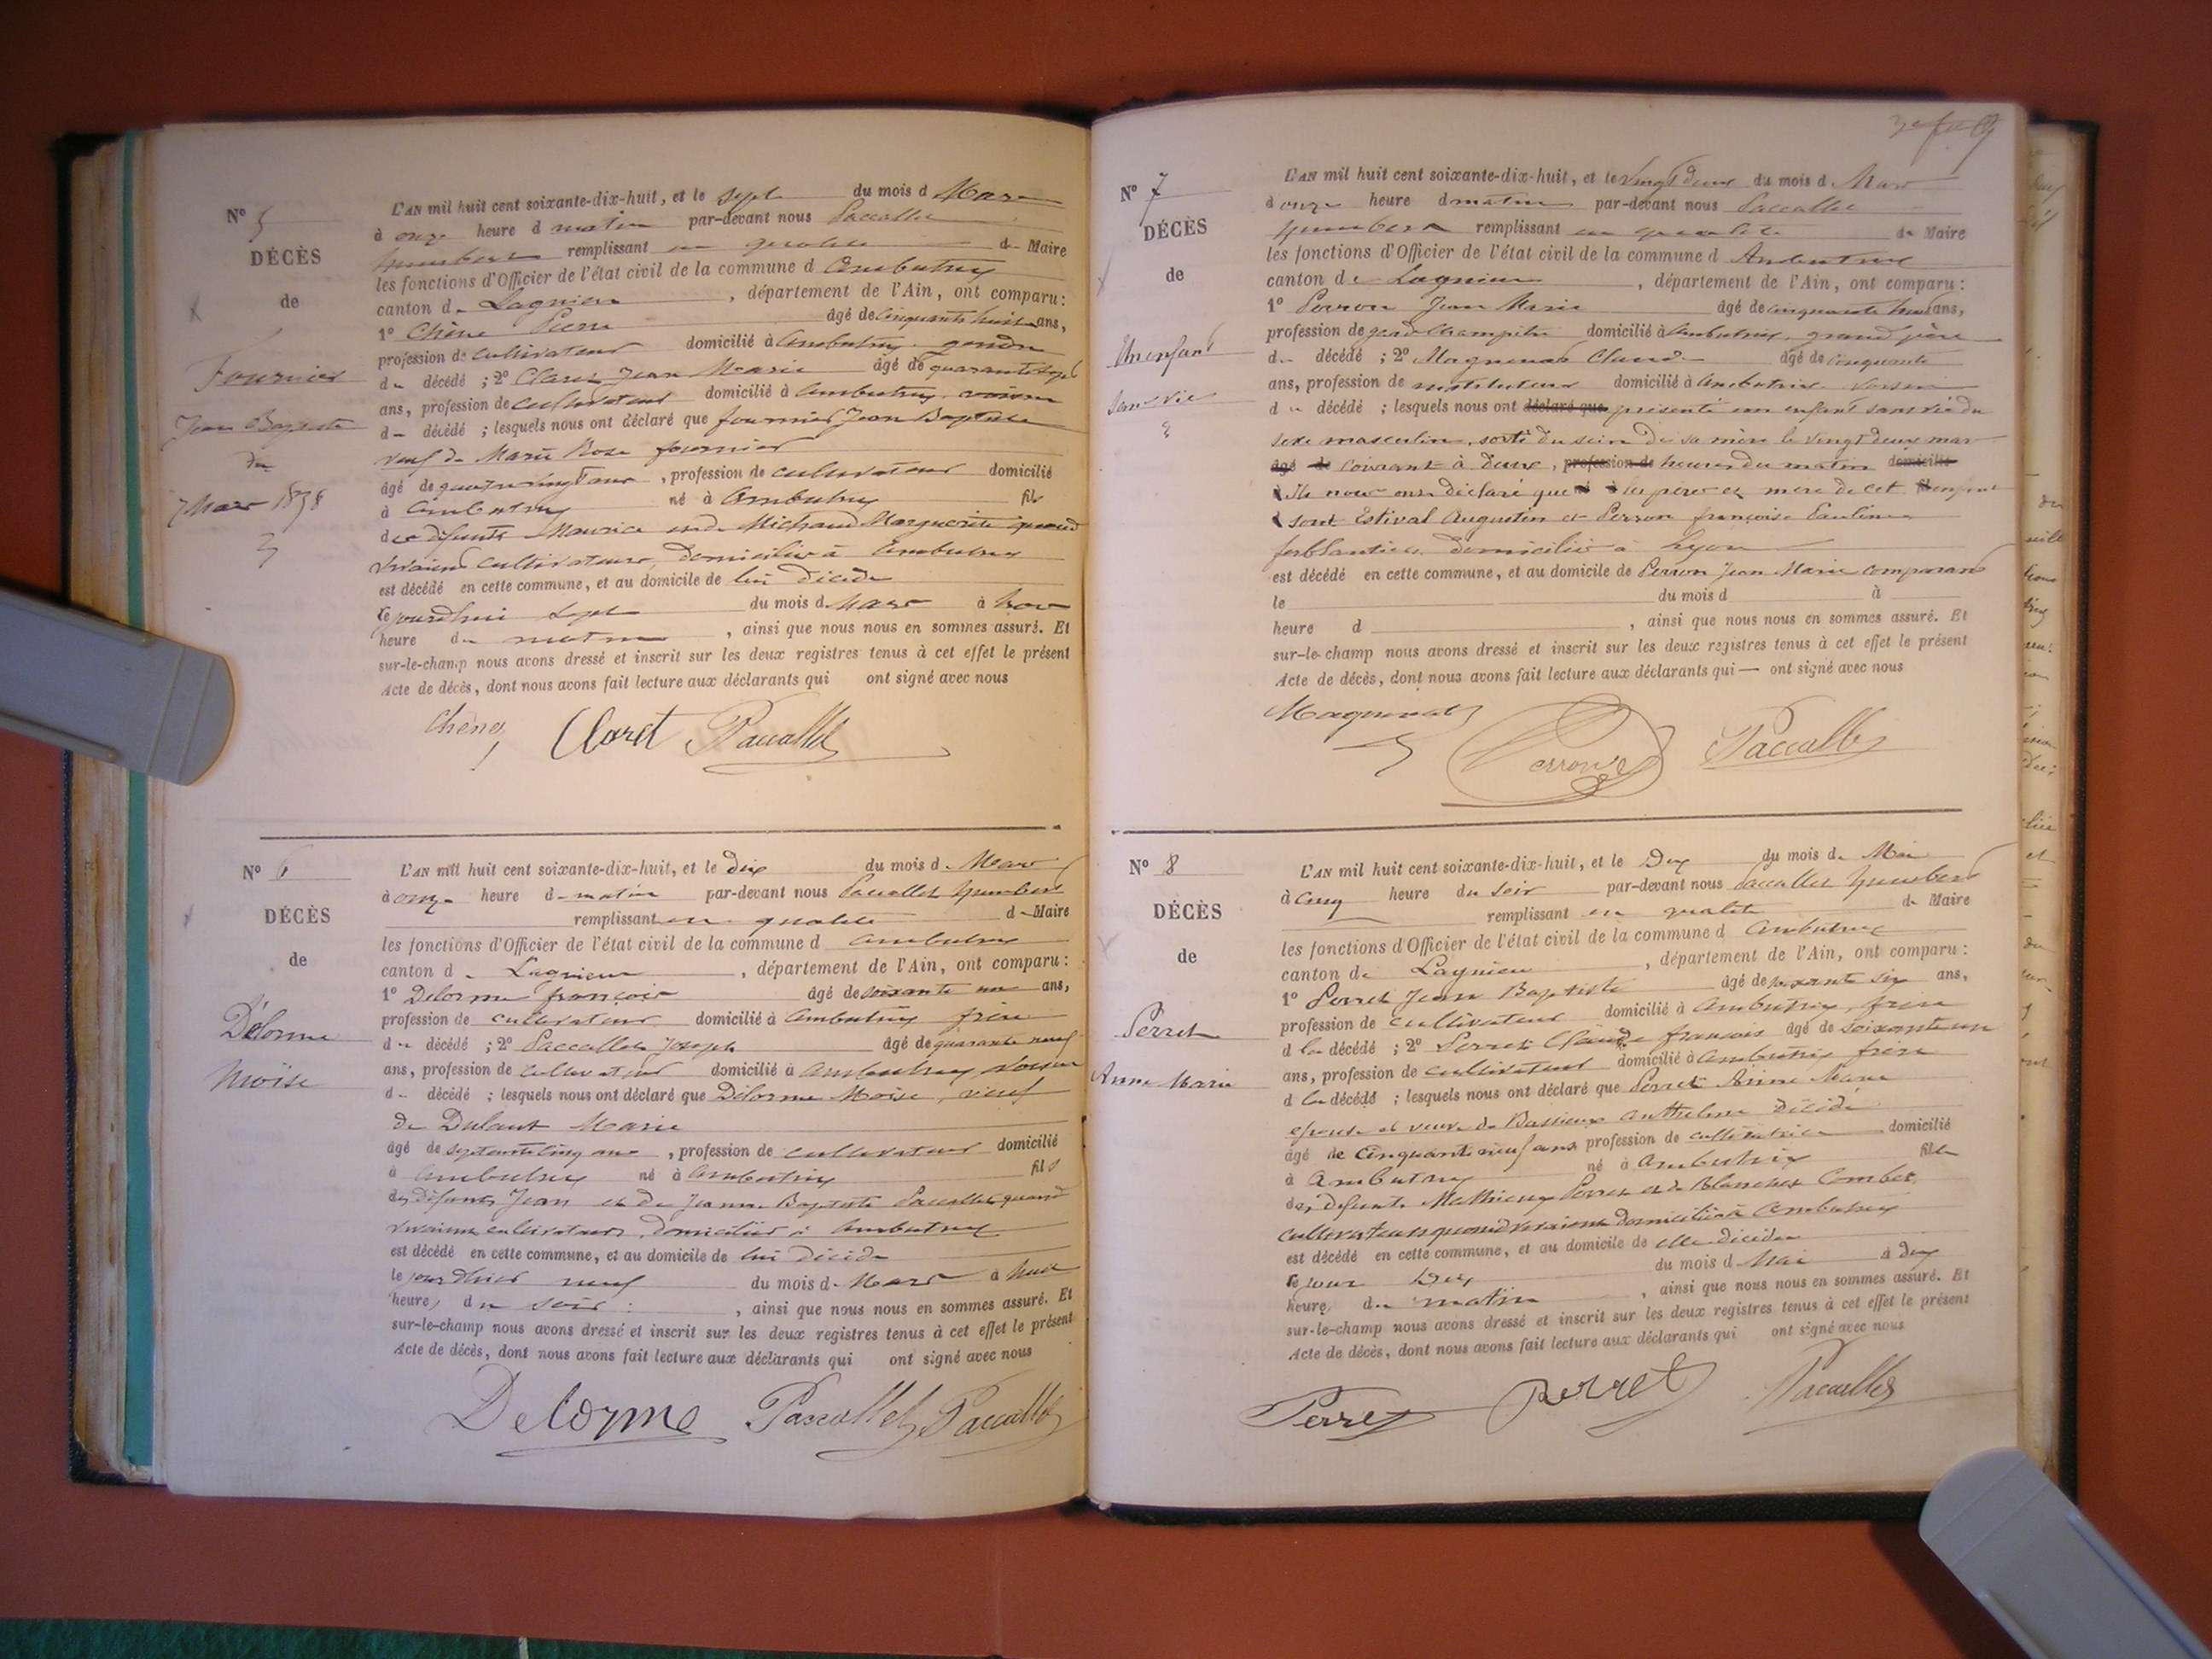 N° 5
DÉCÈS
de
Fournier
Jean Baptiste
du
7 Mars 1878
L'AN mil huit cent soixante-dix-huit, et le sept du mois d Mars
à onze heure d matin par-devant nous Paccallet
humbert remplissant en qualité de Maire
les fonctions d'Officier de l'état civil de la commune d Ambutrix
canton de Lagnieu, département de l'Ain, ont comparu:
1° Chêne Pierre âgé de cinquante huit ans,
profession de cultivateur domicilié à Ambutrix gendre
du décédé ; 2° Claret Jean Marie âgé de quarante sept
ans, profession de cultivateur domicilié à Ambutrix voisin
du décédé ; lesquels nous ont déclaré que fournier Jean Baptiste
veuf de Marie Rose fournier
âgé de quatre vingt ans, profession de cultivateur domicilié
à Ambutrix né à Ambutrix fils
des défunts Maurice et de Michaud Marguerite quand
vivaient cultivateurs, domiciliés à Ambutrix
est décédé en cette commune, et au domicile de lui décédé
ce jourd'hui sept du mois d Mars à trois
heure du matin, ainsi que nous nous en sommes assuré. Et
sur-le-champ nous avons dressé et inscrit sur les deux registres tenus à cet effet le présent
Acte de décès, dont nous avons fait lecture aux déclarants qui ont signé avec nous
Chêne Claret Paccallet
N° 6
DÉCÈS
de
Délorme
Moïse
L'AN mil huit cent soixante-dix-huit, et le dix du mois de Mars
à onze heure d matin par-devant nous Paccallet humbert
remplissant en qualité de Maire
les fonctions d'Officier de l'état civil de la commune d Ambutrix
canton de Lagnieu, département de l'Ain, ont comparu:
1° Delorme françois âgé de soixante un ans,
profession de cultivateur domicilié à Ambutrix frère
du décédé ; 2° Paccallet Joseph âgé de quarante neuf
ans, profession de cultivateur domicilié à Ambutrix, voisin
du décédé ; lesquels nous ont déclaré que Délorme Moïse, veuf
de Dulaut Marie
âgé de septante cinq ans, profession de cultivateur domicilié
à Ambutrix né à Ambutrix fils
des défunts Jean et de Jeanne Baptiste Paccallet quand
vivaient cultivateurs, domiciliés à Ambutrix
est décédé en cette commune, et au domicile de lui décédé
le jour d'hier neuf du mois de Mars à huit
heures du soir, ainsi que nous nous en sommes assuré. Et
sur-le-champ nous avons dressé et inscrit sur les deux registres tenus à cet effet le présent
Acte de décès, dont nous avons fait lecture aux déclarants qui ont signé avec nous
Delorme Paccallet Paccallet
N° 7
DÉCÈS
de
Un enfant
sans vie
L'AN mil huit cent soixante-dix-huit, et le vingt deux du mois d Mars
à onze heure d matin par-devant nous Paccallet
humbert remplissant en qualité de Maire
les fonctions d'Officier de l'état civil de la commune d Ambutrix
canton de Lagnieu, département de l'Ain, ont comparu:
1° Perron Jean Marie âgé de cinquante huit ans,
profession de garde champêtre domicilié à Ambutrix, grand père
du décédé ; 2° Magnenat Claude âgé de cinquante
ans, profession de instituteur domicilié à Ambutrix voisin
du décédé ; lesquels nous ont déclaré que présenté un enfant sans vie du
sexe masculin, sorti du sein de sa mère le vingt deux mars
âgé de courant à deux, profession de heures du matin domicilié
Ils nous ont déclaré que les père et mère de cet enfant
sont Estival Augustin et Perron françoise Pauline
ferblantiers domiciliés à Lyon
est décédé en cette commune, et au domicile de Perron Jean Marie comparant
le du mois d à
heure d, ainsi que nous nous en sommes assuré. Et
sur-le-champ nous avons dressé et inscrit sur les deux registres tenus à cet effet le présent
Acte de décès, dont nous avons fait lecture aux déclarants qui — ont signé avec nous
Magnenat Perron Paccallet
N° 8
DÉCÈS
de
Perret
Anne Marie
L'AN mil huit cent soixante-dix-huit, et le Dix du mois de Mai
à cinq heure du soir par-devant nous Paccallet humbert
remplissant en qualité de Maire
les fonctions d'Officier de l'état civil de la commune d Ambutrix
canton de Lagnieu, département de l'Ain, ont comparu:
1° Perret Jean Baptiste âgé de soixante six ans,
profession de cultivateur domicilié à Ambutrix, frère
d la décédé ; 2° Perret Claude françois âgé de soixante un
ans, profession de cultivateur domicilié à Ambutrix frère
d la décédé ; lesquels nous ont déclaré que Perret Anne Marie
épouse et veuve de Bassieux Anthelme décédé
âgé de cinquante neuf ans profession de cultivatrice domicilié
à Ambutrix né à Ambutrix fille
des défunts Mathieu Perret et de Blanchet Combet
cultivateurs quand vivaient domiciliés à Ambutrix
est décédé en cette commune, et au domicile de elle décédée
ce jour dix du mois d Mai à dix
heure du matin, ainsi que nous nous en sommes assuré. Et
sur-le-champ nous avons dressé et inscrit sur les deux registres tenus à cet effet le présent
Acte de décès, dont nous avons fait lecture aux déclarants qui ont signé avec nous
Perret Perret Paccallet